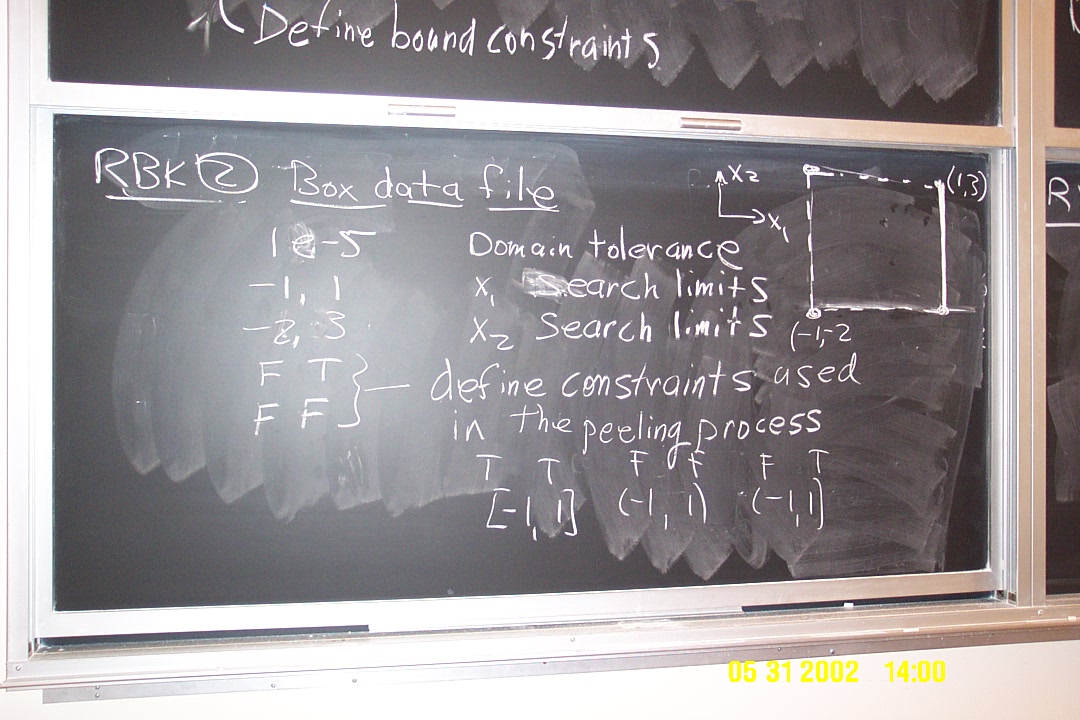 Define bound constraints
RBK ② Box data file
x2
x1
(1,3)
(-1,-2
R
1e-5 Domain tolerance
-1, 1 x1 Search limits
-2, 3 x2 Search limits
F T
F F
} — define constraints used
in the peeling process
T T F F F T
[-1, 1] (-1, 1) (-1, 1]
05 31 2002 14:00